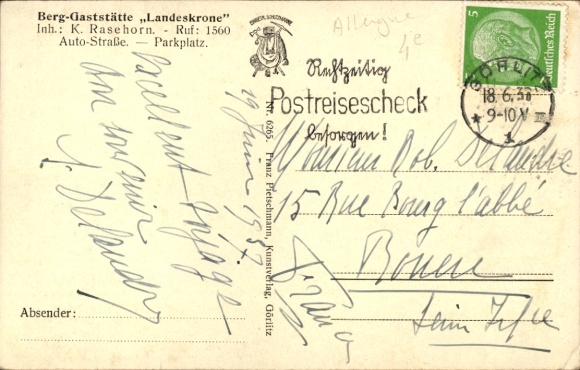 Berg-Gaststätte „Landeskrone"
Inh.: K. Rasehorn. - Ruf: 1560
Auto-Straße. — Parkplatz.
Allemagne
4e
Rechtzeitig
Postreisescheck
besorgen!
5
Deutsches Reich
GÖRLITZ
9-10 V
1
19 Juin 1937
Excellent voyage
Bon souvenir
Nr. 6265. Franz Pietschmann, Kunstverlag, Görlitz
Monsieur Rob. Delandre
15 Rue Bourg l'abbé
Rouen
Seine Infre
France
Absender: